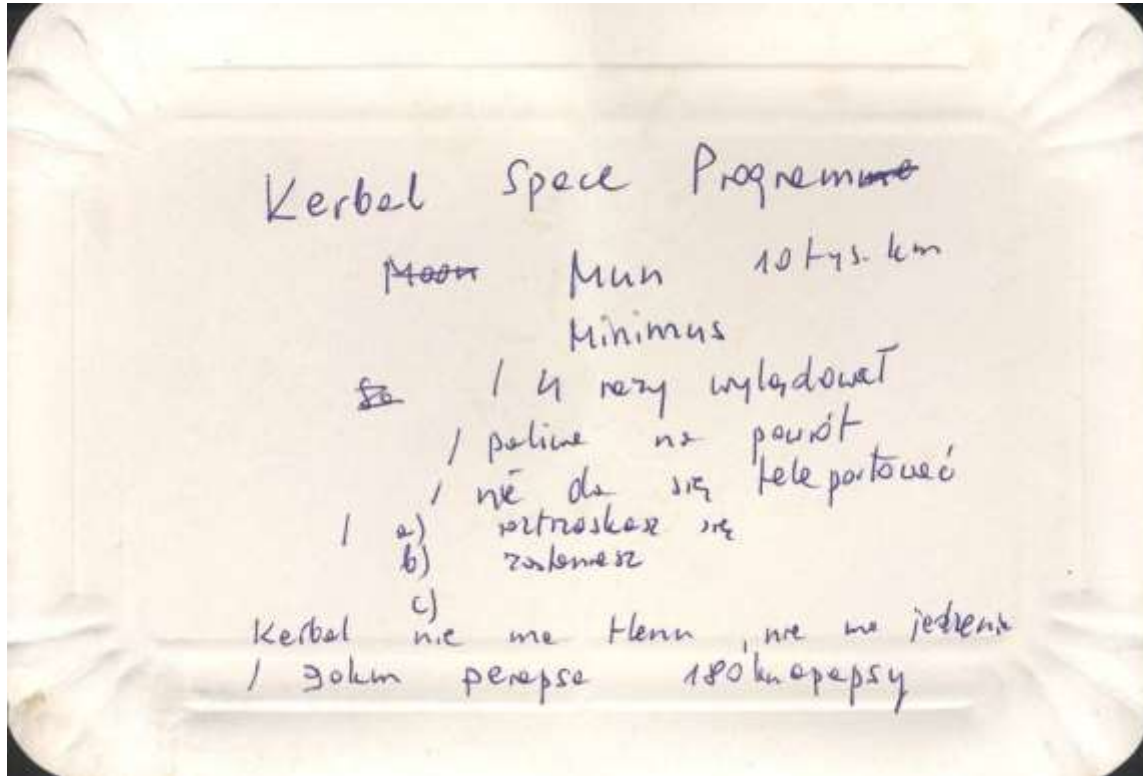 Kerbal Space Program
Mun 10 tys. km
Minimus
/ 4 razy wylądował
/ paliwa na powrót
/ nie da się teleportować
/ a) roztrzaskasz się
b) zostaniesz
c)
Kerbal nie ma tlenu, nie ma jedzenia
/ 30km perapsa 180km apapsy